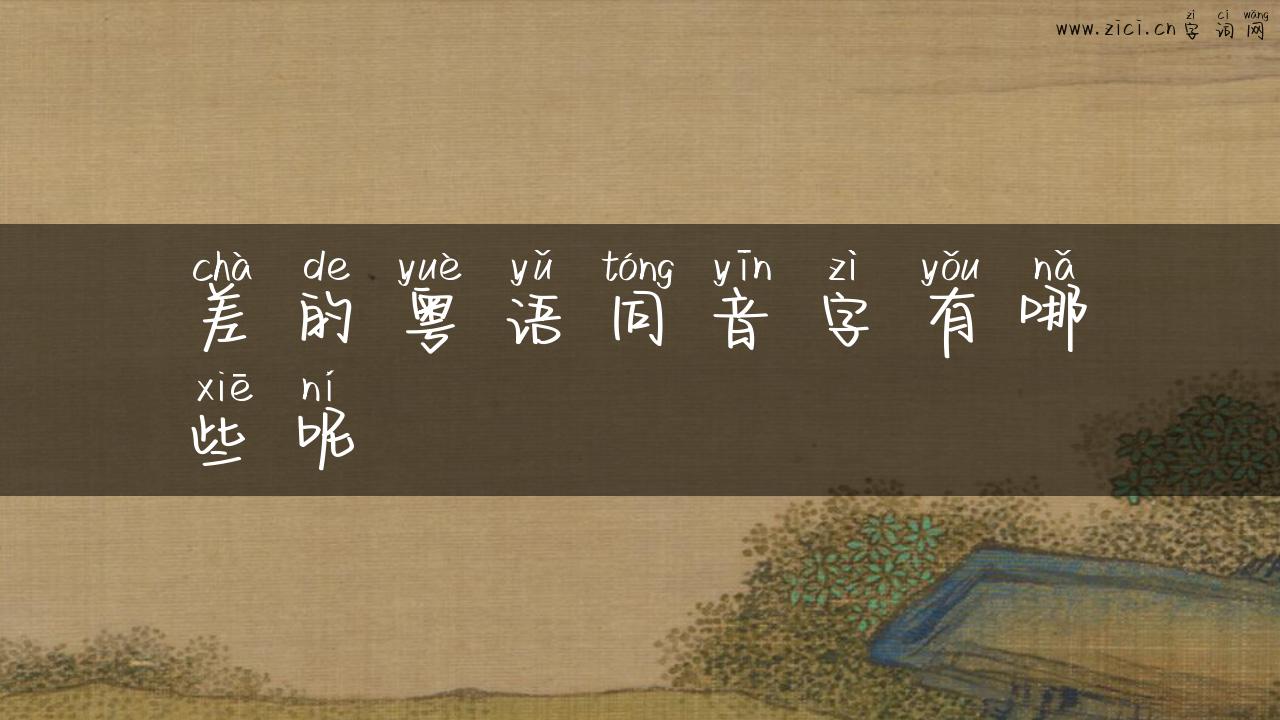 zì cí wǎng
www.zici.cn 字 词 网
chà de yuè yǔ tóng yīn zì yǒu nǎ
差 的 粤 语 同 音 字 有 哪
xiē ní
些 呢